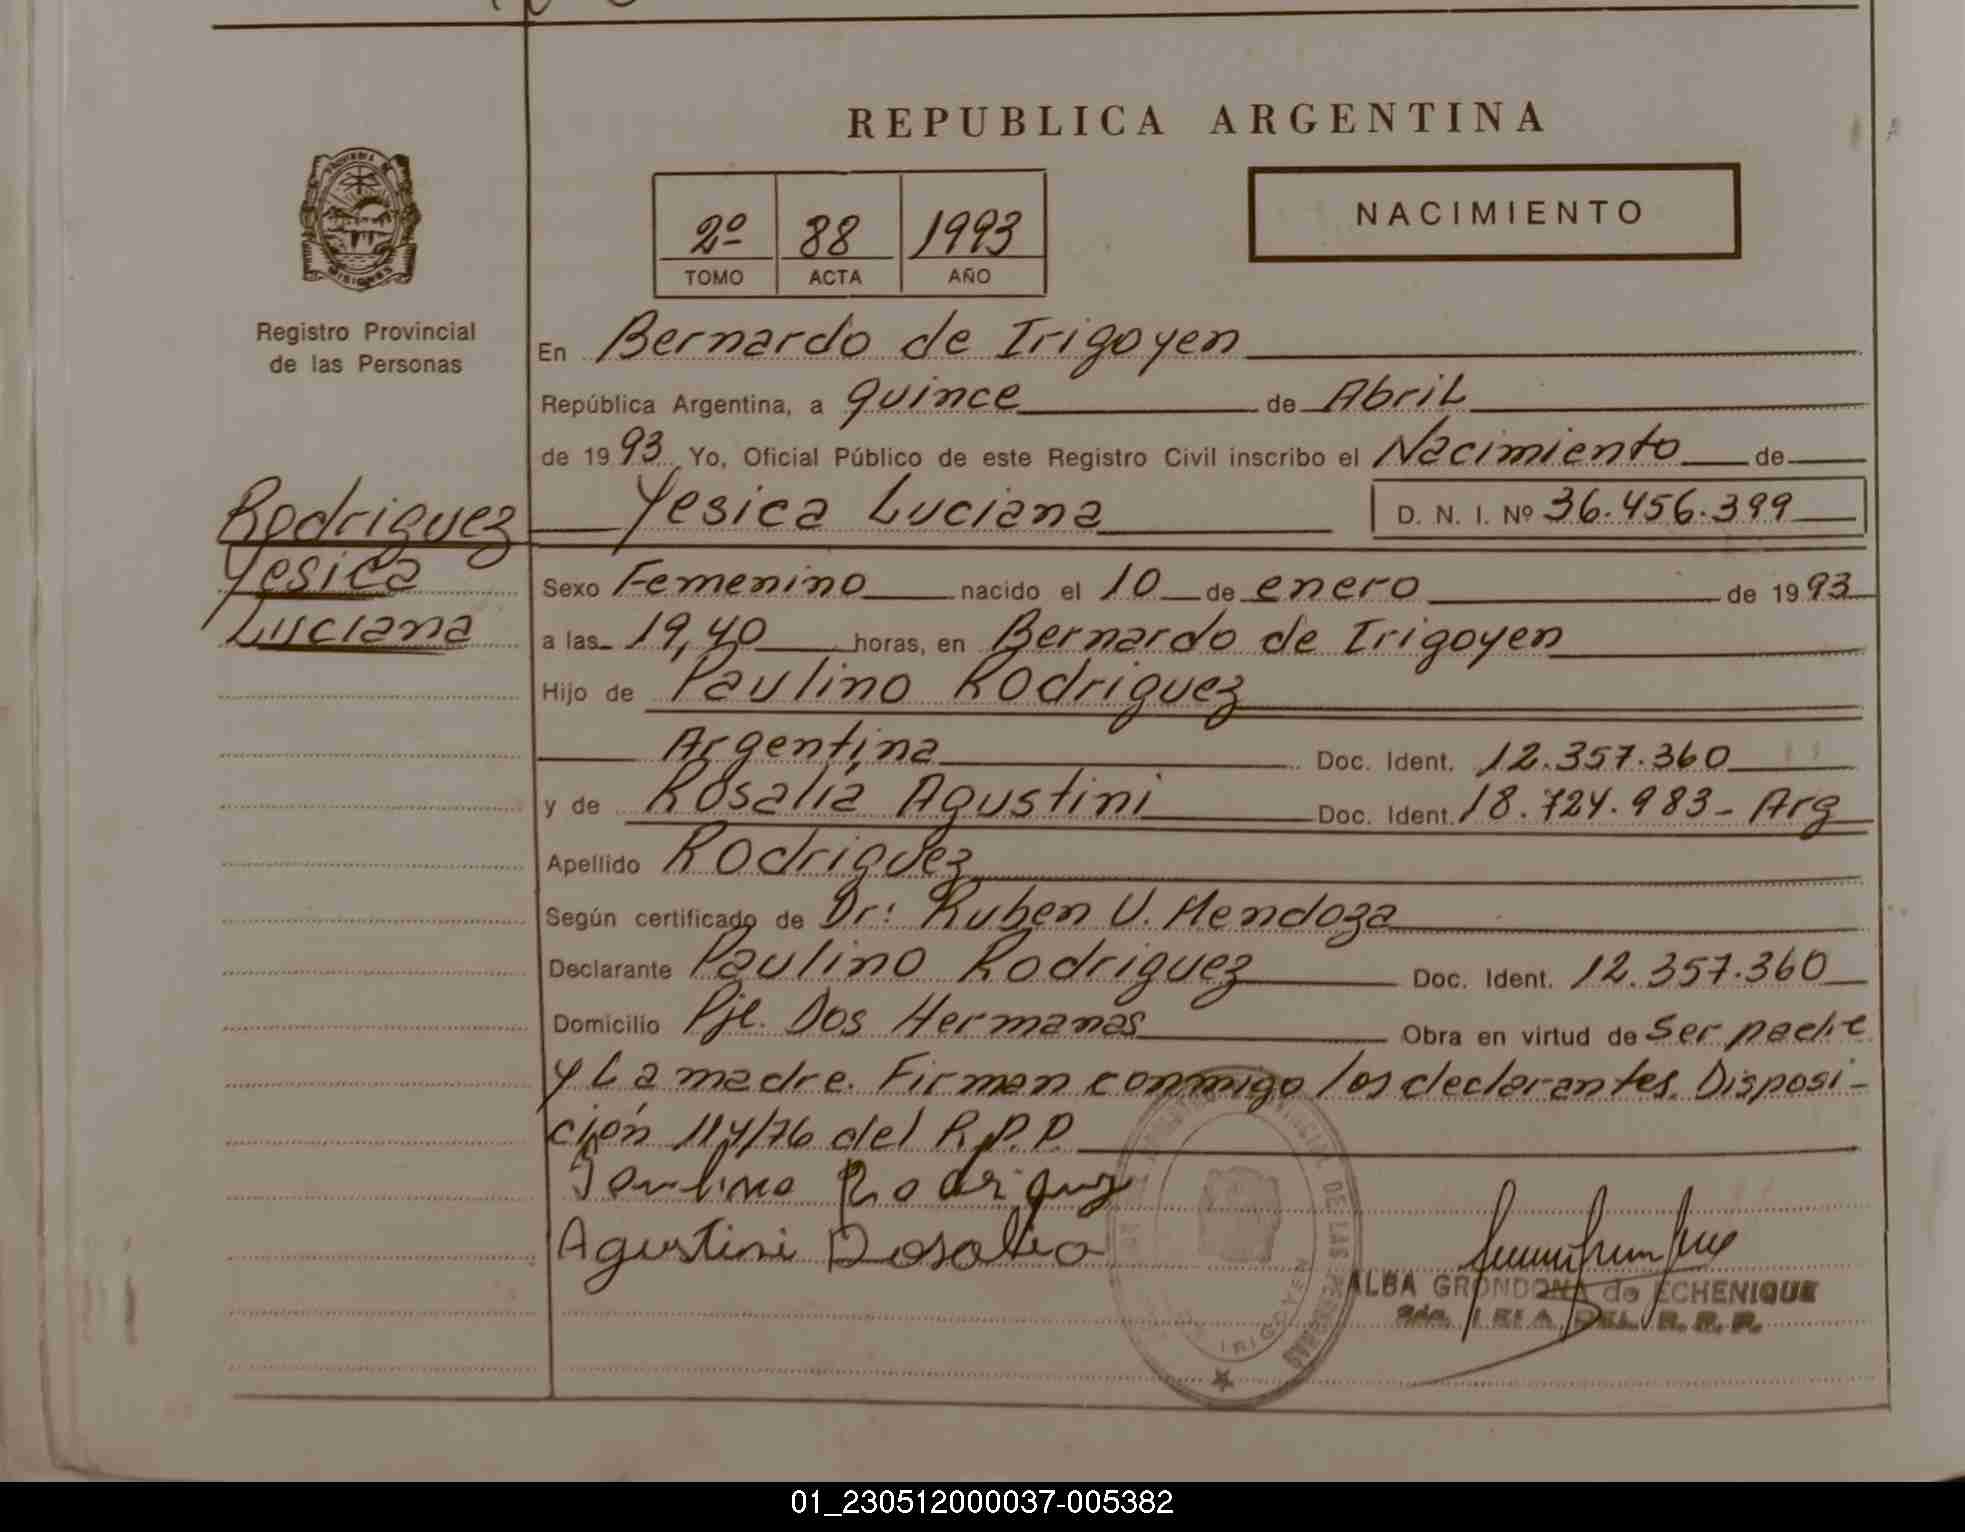 REPUBLICA ARGENTINA
PROVINCIA DE
MISIONES
Registro Provincial
de las Personas
2º 88 1993
TOMO ACTA AÑO
NACIMIENTO
En Bernardo de Irigoyen
República Argentina, a quince de Abril
de 1993 Yo, Oficial Público de este Registro Civil inscribo el Nacimiento de
Rodriguez
Yesica
Luciana
Yesica Luciana D. N. I. Nº 36.456.399
Sexo Femenino nacido el 10 de enero de 1993
a las 19,40 horas, en Bernardo de Irigoyen
Hijo de Paulino Rodriguez
Argentina Doc. Ident. 12.357.360
y de Rosalía Agustini Doc. Ident. 18.724.983- Arg
Apellido Rodriguez
Según certificado de Dr: Ruben U. Mendoza
Declarante Paulino Rodriguez Doc. Ident. 12.357.360
Domicilio Pje. Dos Hermanas Obra en virtud de Ser padre
y La madre. Firman conmigo los declarantes. Disposi-
ción 114/76 del R.P.P.
Paulino Rodriguez
Agustini Rosalia
DE LAS PERSONAS
IRIGOYEN
ALBA GRONDONA de ECHENIQUE
DEL R.P.P.
01_230512000037-005382